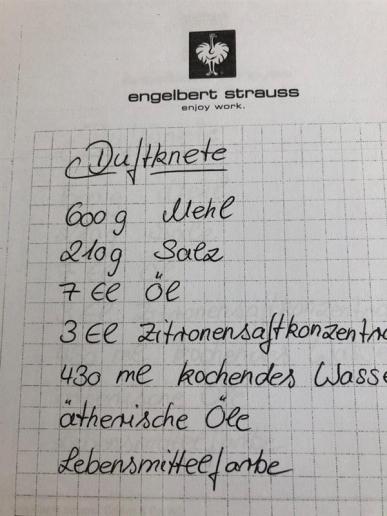 engelbert strauss
enjoy work.
Duftknete
600 g Mehl
210g Salz
7 El Öl
3 El Zitronensaftkonzentra
430 ml kochendes Wasse
ätherische Öle
Lebensmittelfarbe